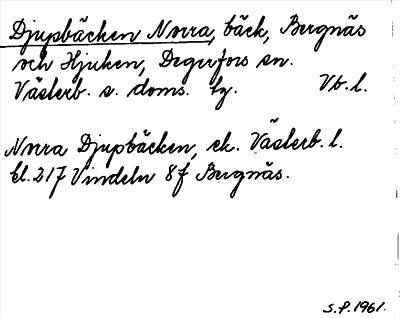 Djupbäcken Norra, bäck, Bergnäs
och Hjuken, Degerfors sn.
Västerb. s. doms. tg. Vb. l.
Norra Djupbäcken, ek. Västerb. l.
bl. 217 Vindeln 8f Bergnäs.
S.P. 1961.